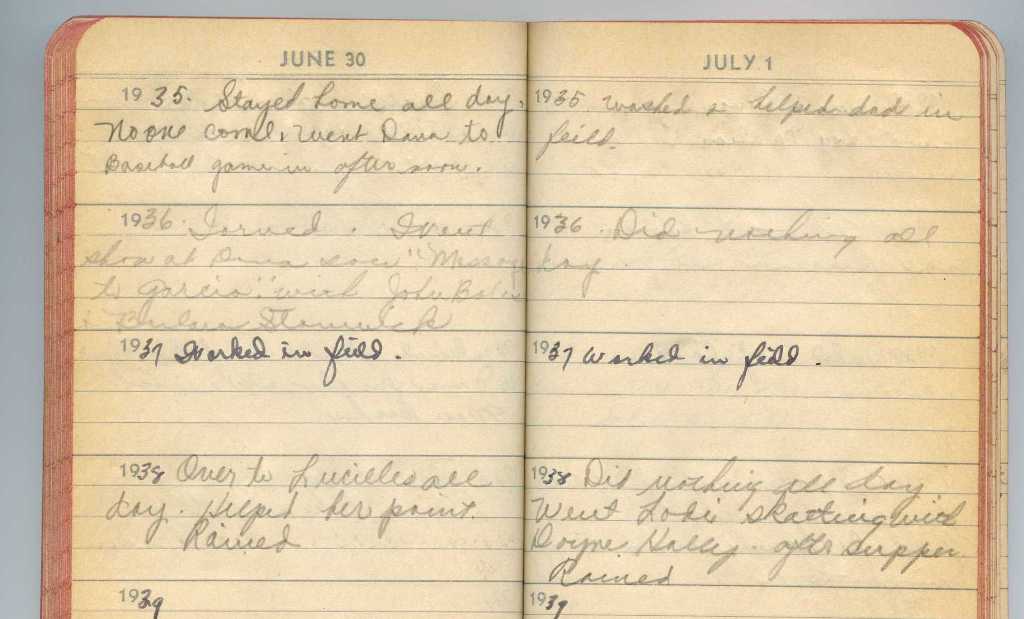 JUNE 30
1935. Stayed home all day.
No one come. Went Dana to
Baseball game in after noon.
1936. Ironed. Went
show at Dana saw "Message
to Garcia" with John Boles
& Barbara Stanwick
1937 Worked in feild.
1938 Over to Lucilles all
day. Helped her paint.
Rained
1939
JULY 1
1935 washed & helped dad in
feild.
1936. Did nothing all
day.
1937 Worked in feild.
1938 Did nothing all day
Went Lodi skatting with
Doyne after supper
Rained
1939